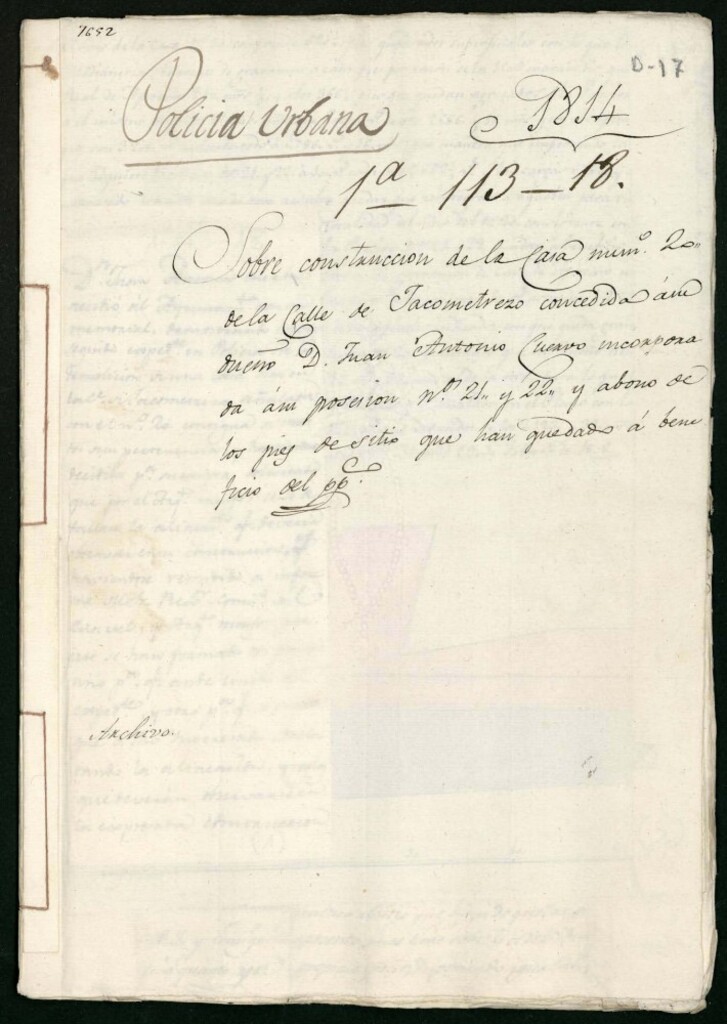 7652
D-17
Policia Urbana
1814
1ª 113-18.
Sobre construccion de la Casa numº. 20,,
de la Calle de Jacometrezo concedida ásu
dueño D. Juan Antonio Cuervo incorpora
da ásu posesion nº. 21,, y 22,, y abono de
los pies de sitio que han quedado á bene
ficio del ppᶜᵒ.
Archivo.